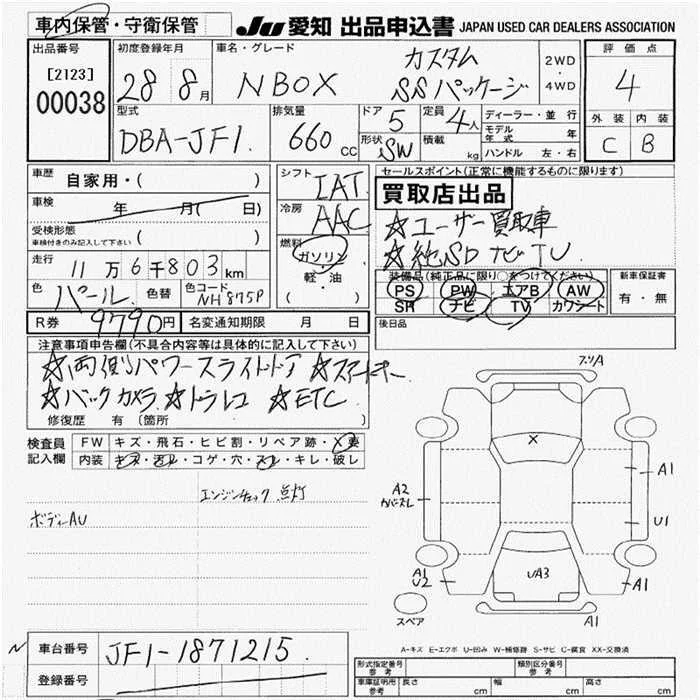 車内保管・守衛保管
JU 愛知 出品申込書 JAPAN USED CAR DEALERS ASSOCIATION
出品番号 初度登録年月 車名・グレード 評価点
[2123] 00038 28 8月 NBOX カスタム SSパッケージ 2WD・4WD 4
型式 排気量 ドア 定員 ディーラー・並行 外装 内装
DBA-JF1. 660cc 5 4人 モデル年式 年 C B
形状 SW 積載 kg ハンドル 左・右
車歴 自家用・( )
シフト IAT
セールスポイント(正常に機能するものに限ります)
買取店出品
車検 年 月( 日)
冷房 AAC
☆ユーザー買取車
受検形態 車検付きのみ記入して下さい ( )
燃料 ガソリン 軽・油 ( )
☆純SDナビTV
走行 11万6千803km
装備品(純正品に限り○をつけてください) 新車保証書
PS PW エアB AW 有・無
SR ナビ TV カワシート
色 パール 色替 色コード NH875P
R券 9790円 名変通知期限 月 日
後日品
注意事項申告欄(不具合内容等は具体的に記入して下さい)
☆両側パワースライドドア ☆スマートキー
☆バックカメラ ☆ドラレコ ☆ETC
修復歴 有 (箇所 )
検査員記入欄 FW キズ・飛石・ヒビ割・リペア跡・X要
内装 キズ・汚レ・コゲ・穴・スレ・キレ・破レ
エンジンチェック 点灯
ボディーAU
フソリA
X
A1
A2
カバーズレ
U1
A1
U2
UA3
A1
スペア
A1
A-キズ E-エクボ U-凹み W-補修跡 S-サビ C-腐食 XX-交換済
N 車台番号 JF1-1871215.
登録番号
形式指定番号 参考 類別区分番号 参考
車庫証明用 参考 長さ cm 幅 cm 高さ cm